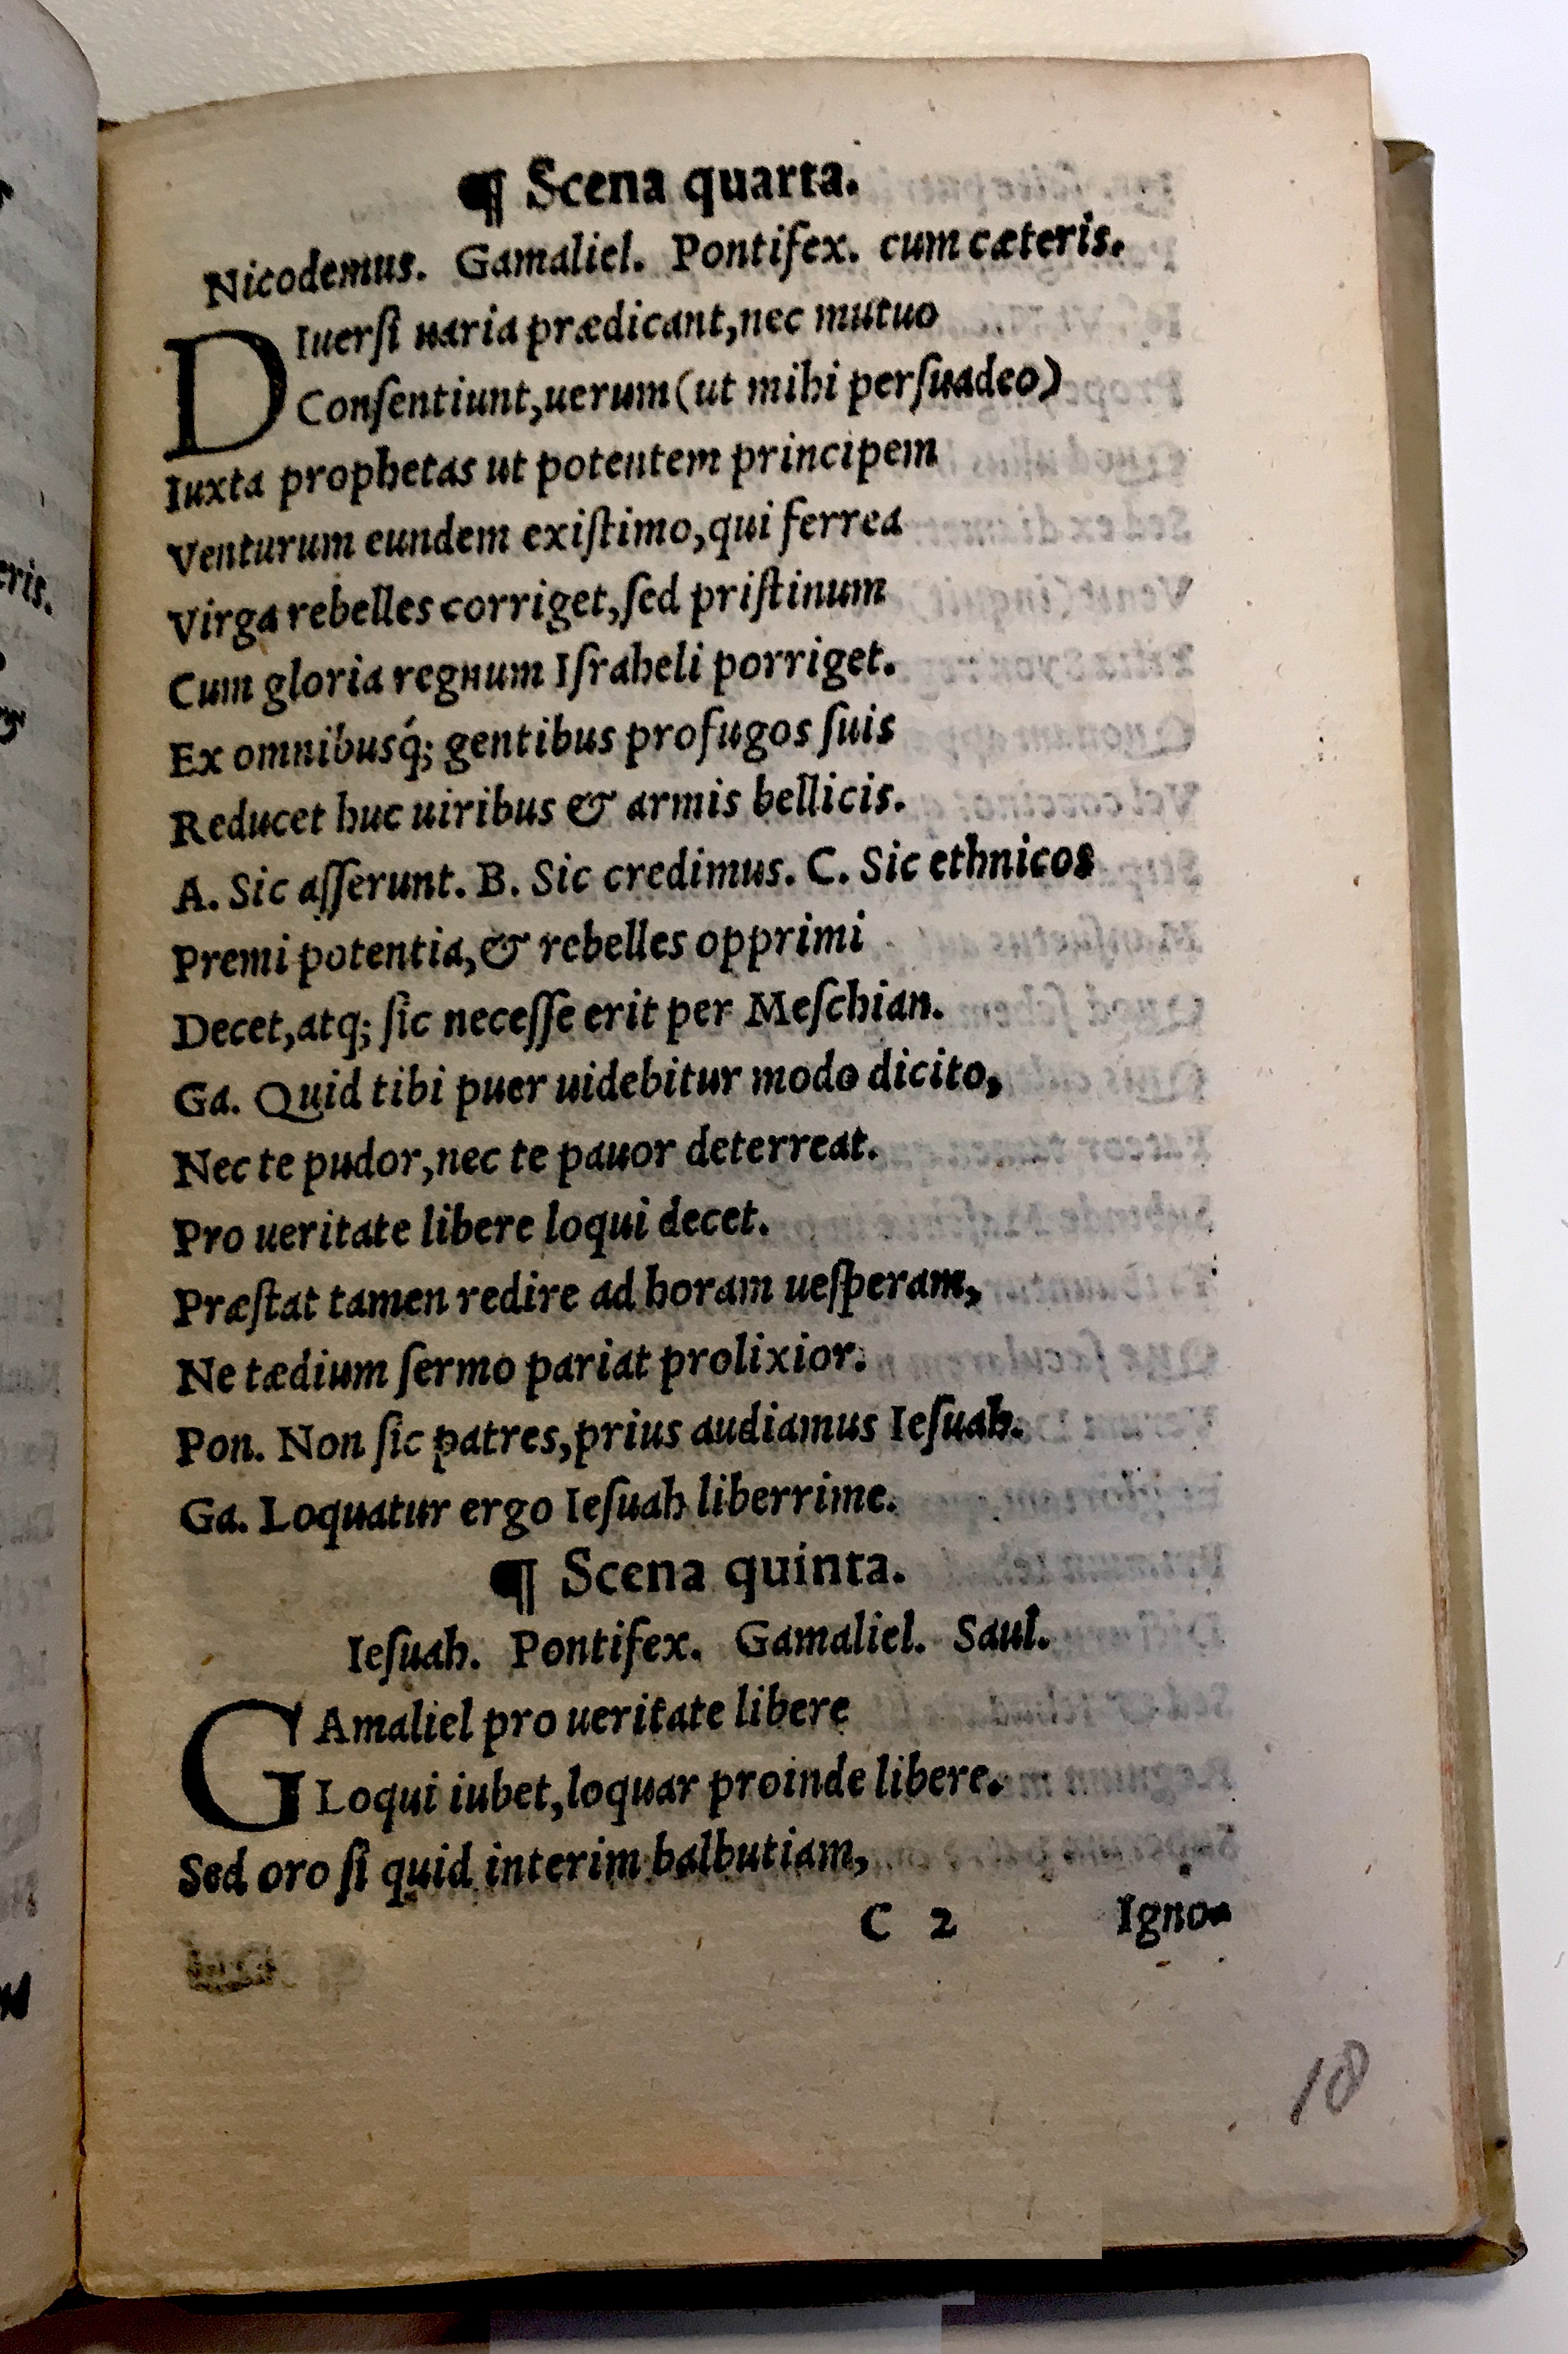 ¶ Scena quarta.
Nicodemus. Gamaliel. Pontifex. cum cæteris.
DIuerſi uaria prædicant,nec mutuo
Conſentiunt,uerum(ut mihi perſuadeo)
Iuxta prophetas ut potentem principem
Venturum eundem exiſtimo,qui ferrea
Virga rebelles corriget,ſed priſtinum
Cum gloria regnum Iſraheli porriget.
Ex omnibusq́; gentibus profugos ſuis
Reducet huc uiribus & armis bellicis.
A. Sic aſſerunt. B. Sic credimus. C. Sic ethnicos
Premi potentia,& rebelles opprimi
Decet,atq; ſic neceſſe erit per Meſchian.
Ga. Quid tibi puer uidebitur modo dicito,
Nec te pudor,nec te pauor deterreat.
Pro ueritate libere loqui decet.
Præſtat tamen redire ad horam ueſperam,
Ne tædium ſermo pariat prolixior.
Pon. Non ſic patres,prius audiamus Ieſuah.
Ga. Loquatur ergo Ieſuah liberrime.
¶ Scena quinta.
Ieſuah. Pontifex. Gamaliel. Saul.
GAmaliel pro ueritate libere
Loqui iubet,loquar proinde libere.
Sed oro ſi quid interim balbutiam,
C 2 Igno-
18